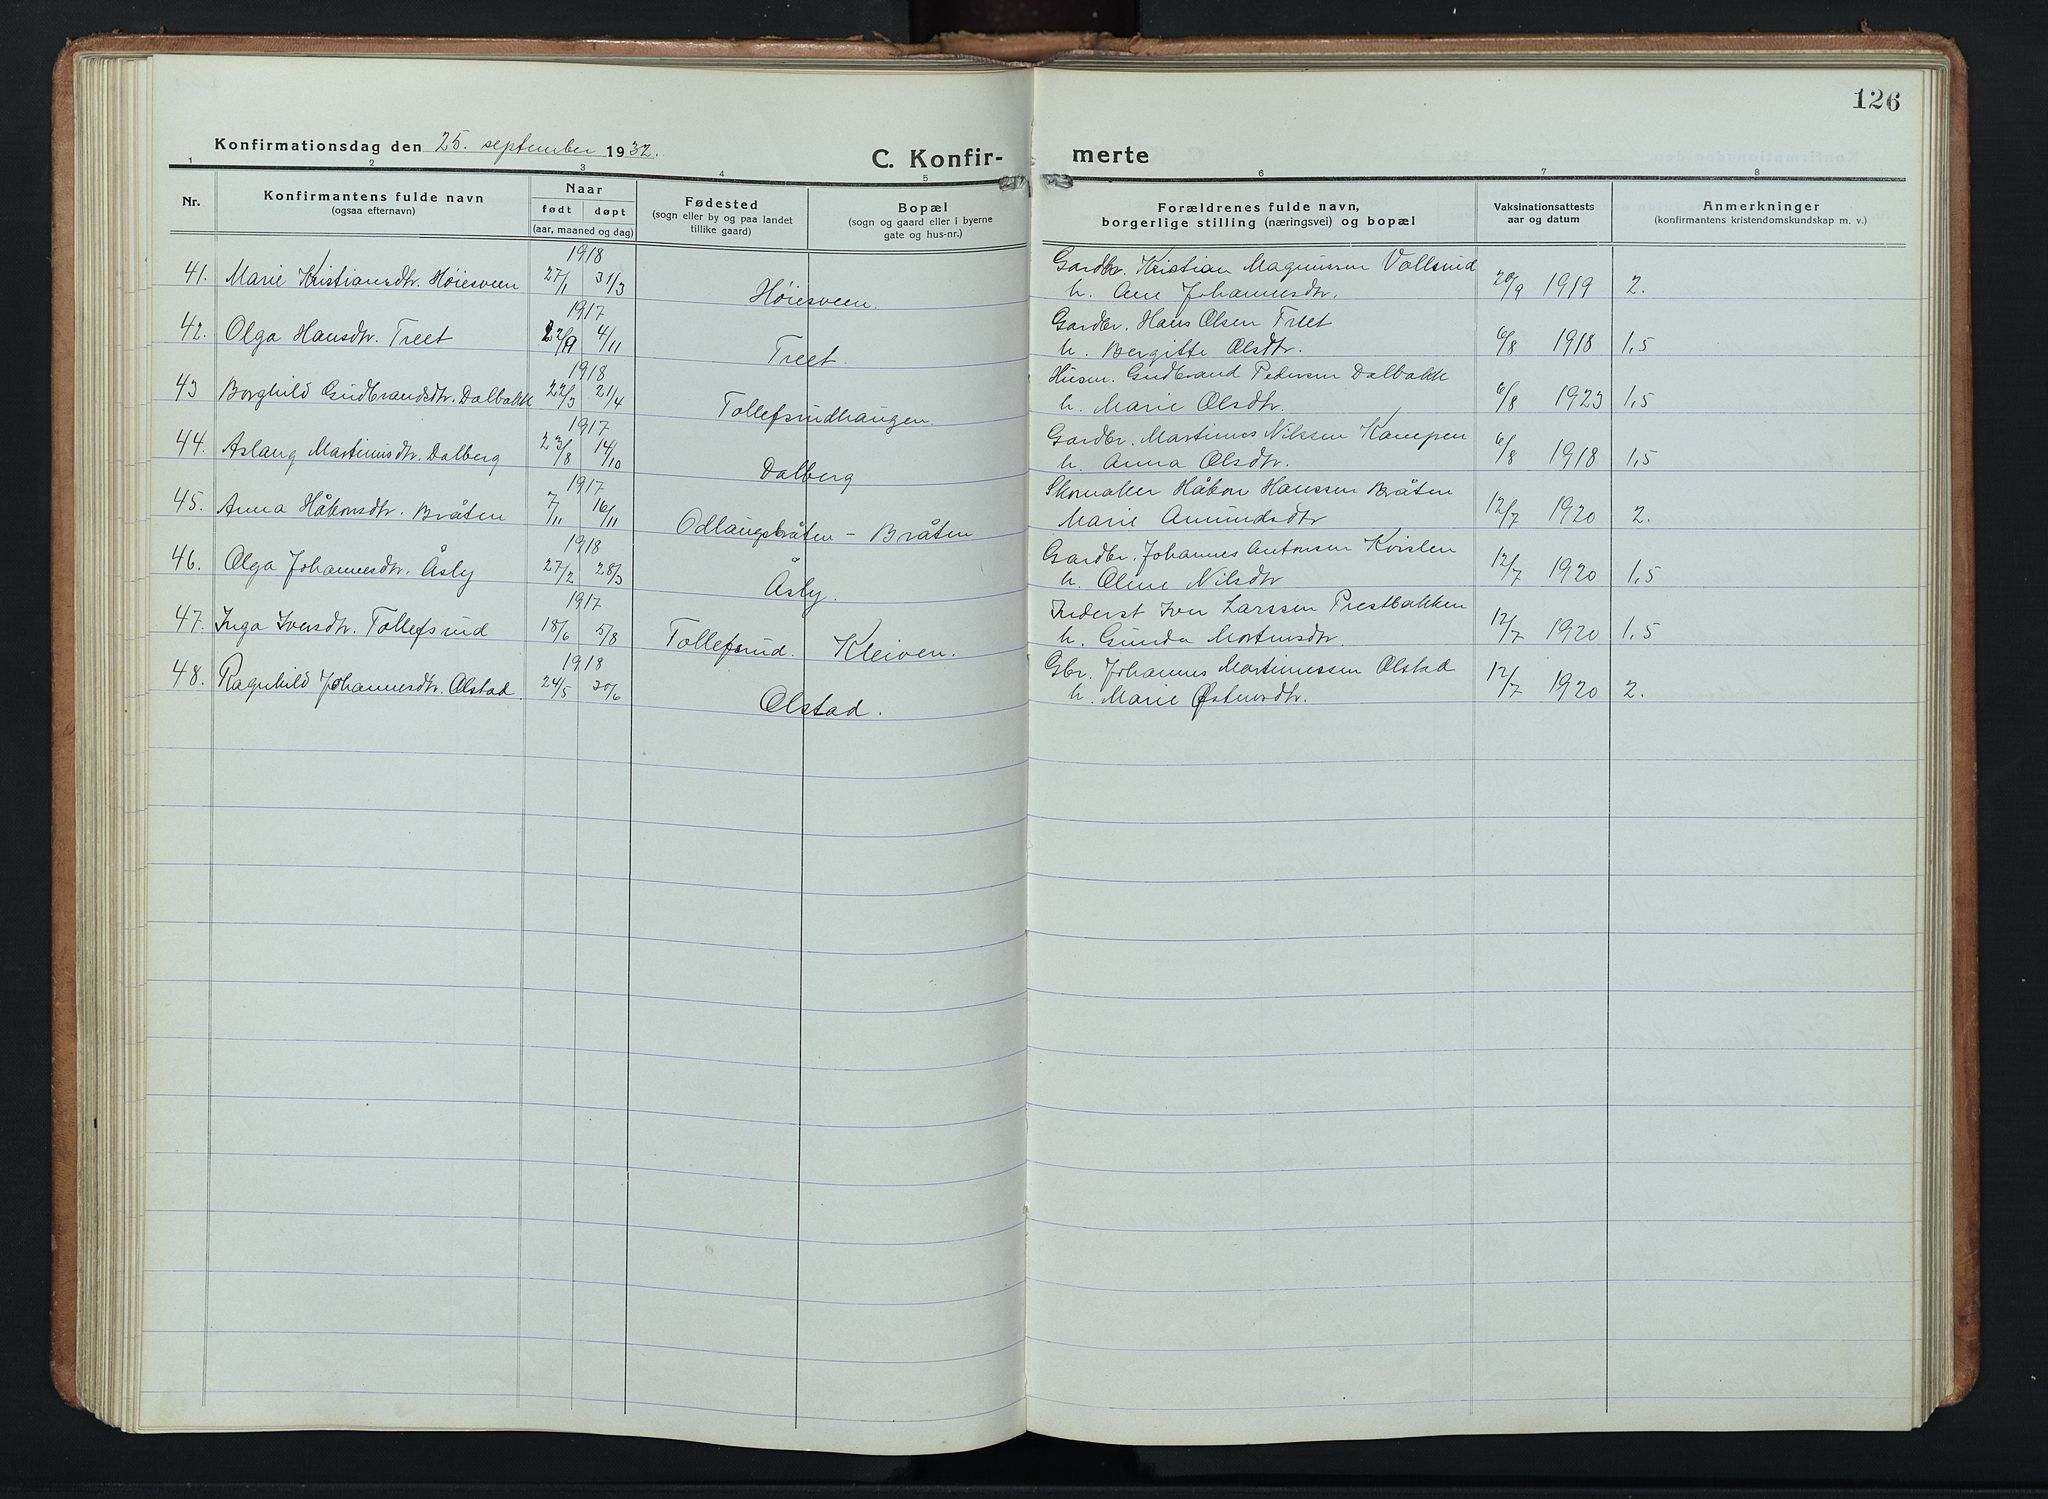 126
Konfirmationsdag den 25. september 1932.
C. Konfir- merte
1 2 3 4 5 6 7 8
Nr.
Konfirmantens fulde navn
(ogsaa efternavn)
Naar
født døpt
(aar, maaned og dag)
Fødested
(sogn eller by og paa landet
tillike gaard)
Bopæl
(sogn og gaard eller i byerne
gate og hus-nr.)
Forældrenes fulde navn,
borgerlige stilling (næringsvei) og bopæl
Vaksinationsattests
aar og datum
Anmerkninger
(konfirmantens kristendomskundskap m. v.)
1918
Gardbr. Kristian Magnussen Vollsund
41. Marie Kristiansdtr. Høiesveen 27/1 31/3 Høiesveen. h. Ane Johannesdtr. 20/9 1919 2.
1917
Gardbr. Hans Olsen Treet
42. Olga Hansdtr. Treet 22/9 4/11 Treet. h. Bergitte Olsdtr. 6/8 1918 1,5
1918
Husm. Gudbrand Pedersen Dalbakk
43 Borghild Gudbrandsdtr. Dalbakk 22/3 21/4 Tollefsrudhaugen. h. Marie Olsdtr. 6/8 1923 1,5
1917
Gardbr. Martinus Nilssen Kampen
44. Aslaug Martinusdtr. Dalberg 23/8 14/10 Dalberg h. Anna Olsdtr. 6/8 1918 1,5
1917
Skomaker Håkon Hanssen Bråten
45. Anna Håkonsdtr. Bråten 7/11 16/11 Odlaugsbråten - Bråten Marie Amundsdtr 12/7 1920 2.
1918
Gardbr. Johannes Antonsen Kvislen
46. Olga Johannesdtr. Åsly 27/2 28/3 Åsly. h. Oline Nilsdtr 12/7 1920 1,5
1917
Inderst Iver Larssen Prestbakken
47. Inga Iversdtr. Tollefsrud 18/6 5/8 Tollefsrud. Kleiven. h. Gunda Mortensdtr 12/7 1920 1,5
1918
Gbr. Johannes Martinussen Olstad
48. Ragnhild Johannesdtr. Olstad 24/5 30/6 Olstad. h. Marie Østensdtr. 12/7 1920 2.